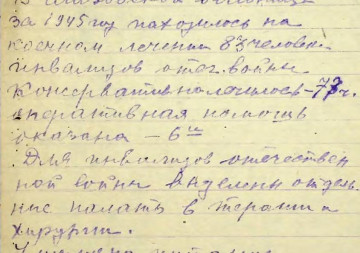 за 1945 год находилось на
коечном лечении 83 человек
инвалидов отеч. войны
Консервативно лечилось – 77 ч.
оперативная помощь
оказана – 6 и
Для инвалидов отечествен
ной войны выделены отдель
ные палаты в терапии и
хирургии.